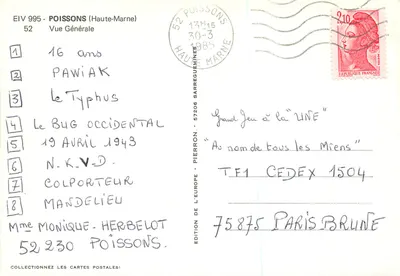 EIV 995 - POISSONS (Haute-Marne)
52 Vue Générale
1 16 ans
2 PAWIAK
3 Le Typhus
4 Le BUG OCCIDENTAL
5 19 AVRIL 1943
6 N.K.V.D.
7 COLPORTEUR
8 MANDELIEU
Mme MONIQUE-HERBELOT
52230 POISSONS.
COLLECTIONNEZ LES CARTES POSTALES!
EDITION DE L'EUROPE - PIERRON - 57206 SARREGUEMINES
52 POISSONS
30-3
1985
HAUTE MARNE
2,10
Grand Jeu à la "UNE"
"Au nom de tous les Miens"
TF1 CEDEX 1504
75875 PARIS BRUNE